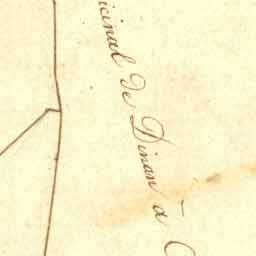 icinal de Dinan à C